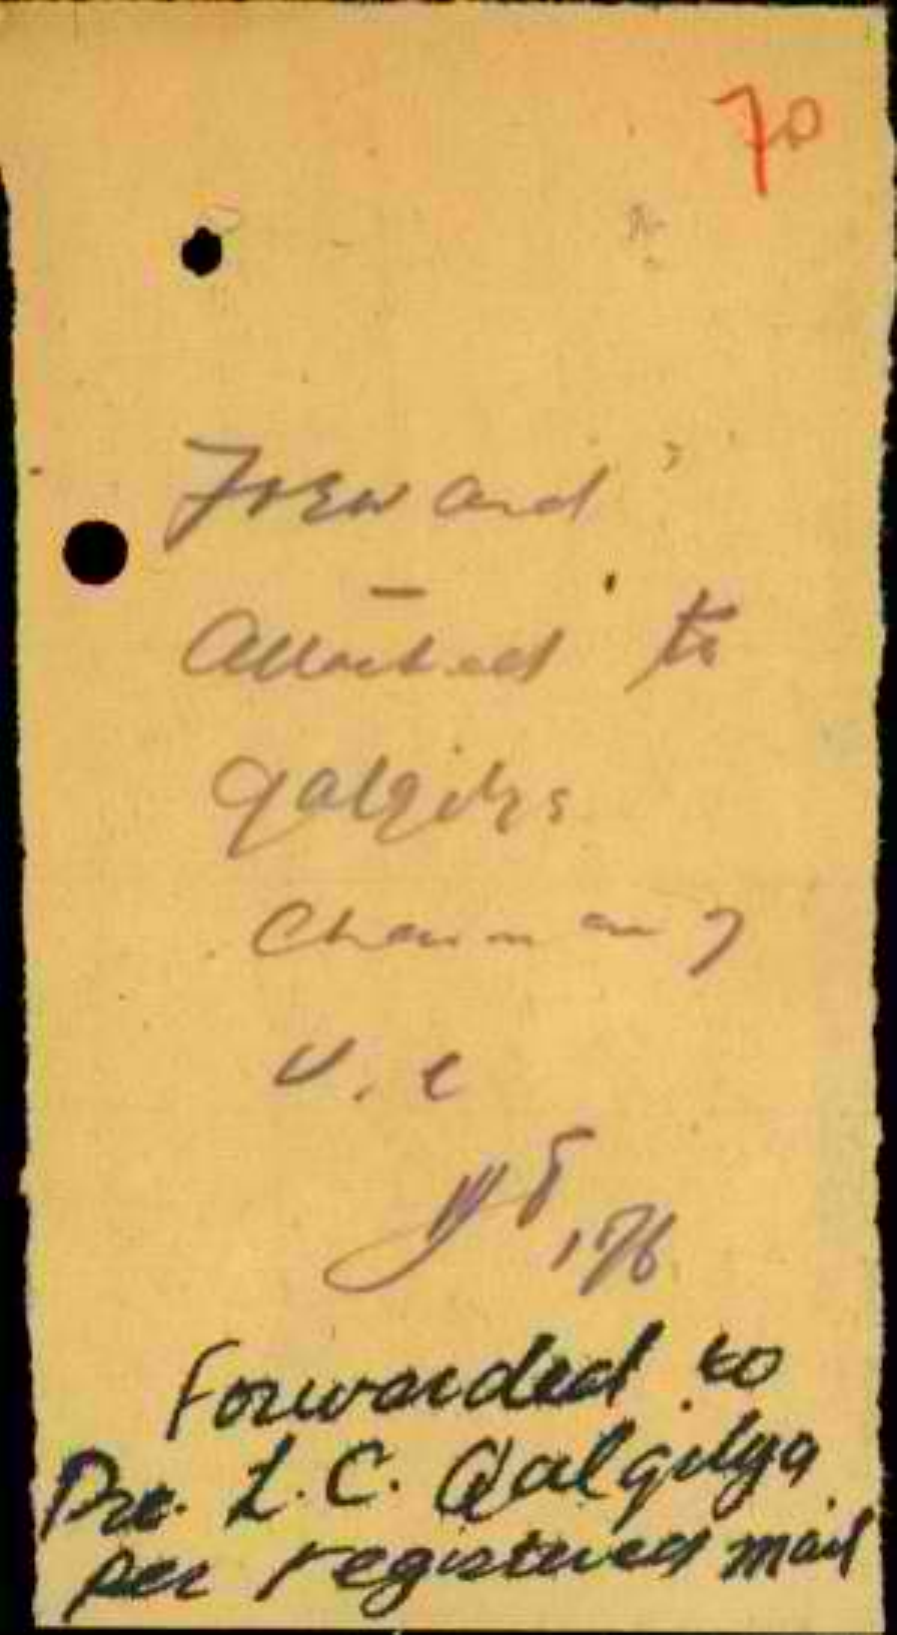 70
Forward
Attached to
Qalqilya
Chairman of
V. C
Forwarded to
Pre. L.C. Qalqilya
per registered mail